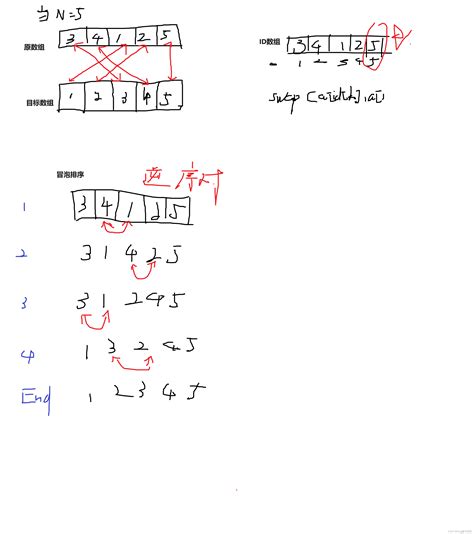 当 N=5
原数组 3 4 1 2 5
目标数组 1 2 3 4 5
ID数组 3 4 1 2 5
1 2 3 4 5
冒泡排序
逆序对
1 3 4 1 2 5
2 3 1 4 2 5
3 3 1 2 4 5
4 1 3 2 4 5
End 1 2 3 4 5